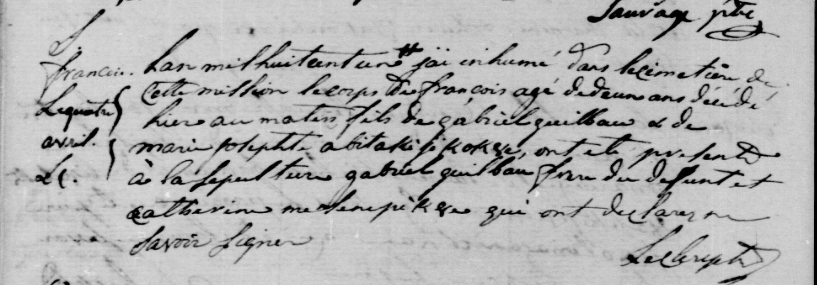 Sauvage ptre
S
francois.
Le quatre
avril.
Lc.
Lan mil huit cent un j'ai inhumé dans le cimetiere de
Cette mission le corps de françois agé de deux ans décédé
hier au matin fils de gabriel guilbau & de
marie josephte abitakijikokwe, ont été present
à la sepulture gabriel guilbau frere du defunt et
catherine qui ont declarer ne
savoir signer
Leclerc ptr